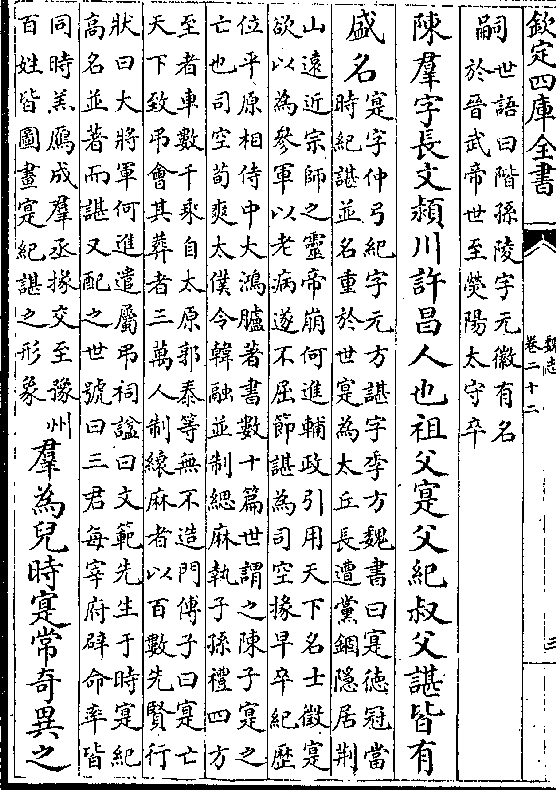 欽定四庫全書
魏志
卷二十二
三
嗣
世語曰階孫陵字元徽有名
於晉武帝世至熒陽太守卒
陳羣字長文潁川許昌人也祖父寔父紀叔父諶皆有
盛名
寔字仲弓紀字元方諶字季方魏書曰寔德冠當
時紀諶並名重於世寔為太丘長遭黨錮隱居荆
山遠近宗師之靈帝崩何進輔政引用天下名士徵寔
欲以為參軍以老病遂不屈節諶為司空掾早卒紀歷
位平原相侍中大鴻臚著書數十篇世謂之陳子寔之
亡也司空荀爽太僕令韓融並制緦麻執子孫禮四方
至者車數千乘自太原郭泰等無不造門傅子曰寔亡
天下致弔會其葬者三萬人制縗麻者以百數先賢行
狀曰大將軍何進遣屬弔祠諡曰文範先生于時寔紀
高名並著而諶又配之世號曰三君每宰府辟命率皆
同時羔鴈成羣丞掾交至豫州
百姓皆圖畫寔紀諶之形象
羣為兒時寔常奇異之